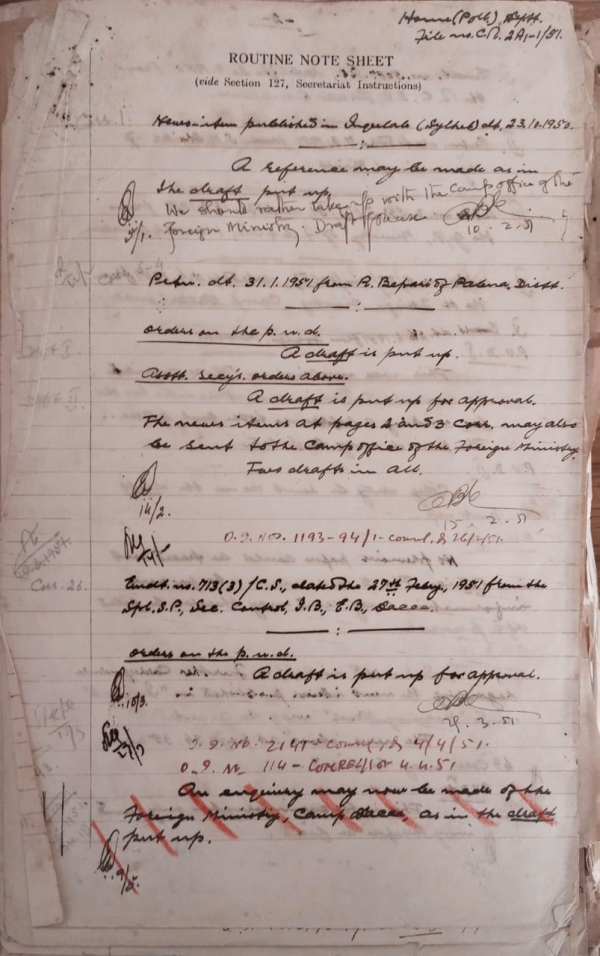 Home (Poll) Deptt.
File no. C.R. 2A1-1/51.
ROUTINE NOTE SHEET
(vide Section 127, Secretariat Instructions)
News-item published in (Sylhet) dt. 23.10.1950.
A reference may be made as in
the draft put up.
We should rather take up with the Camp office of the
Foreign Ministry. Draft please
10. 2. 51
Petn. dt. 31.1.1951 from R. Bepari of Pabna Distt.
orders on the p.w.d.
A draft is put up.
Asstt. Secy's. orders above.
A draft is put up for approval.
The news items at pages 2 and 3 Corr. may also
be sent to the Camp office of the Foreign Ministry.
Two drafts in all.
14/2.
15. 2. 51
O.S. No. 1193-94/1-
Cor. 26.
Endt. no. 713(3)/C.S., dated the 27th Feby., 1951 from the
Spl. S.P., Sec. Control, I.B., E.B., Dacca.
orders on the p.w.d.
A draft is put up for approval.
10/3.
29. 3. 51
4/4/51.
O.S. No 114 - 4.4.51
An enquiry may now be made of the
Foreign Ministry, Camp Dacca, as in the draft
put up.